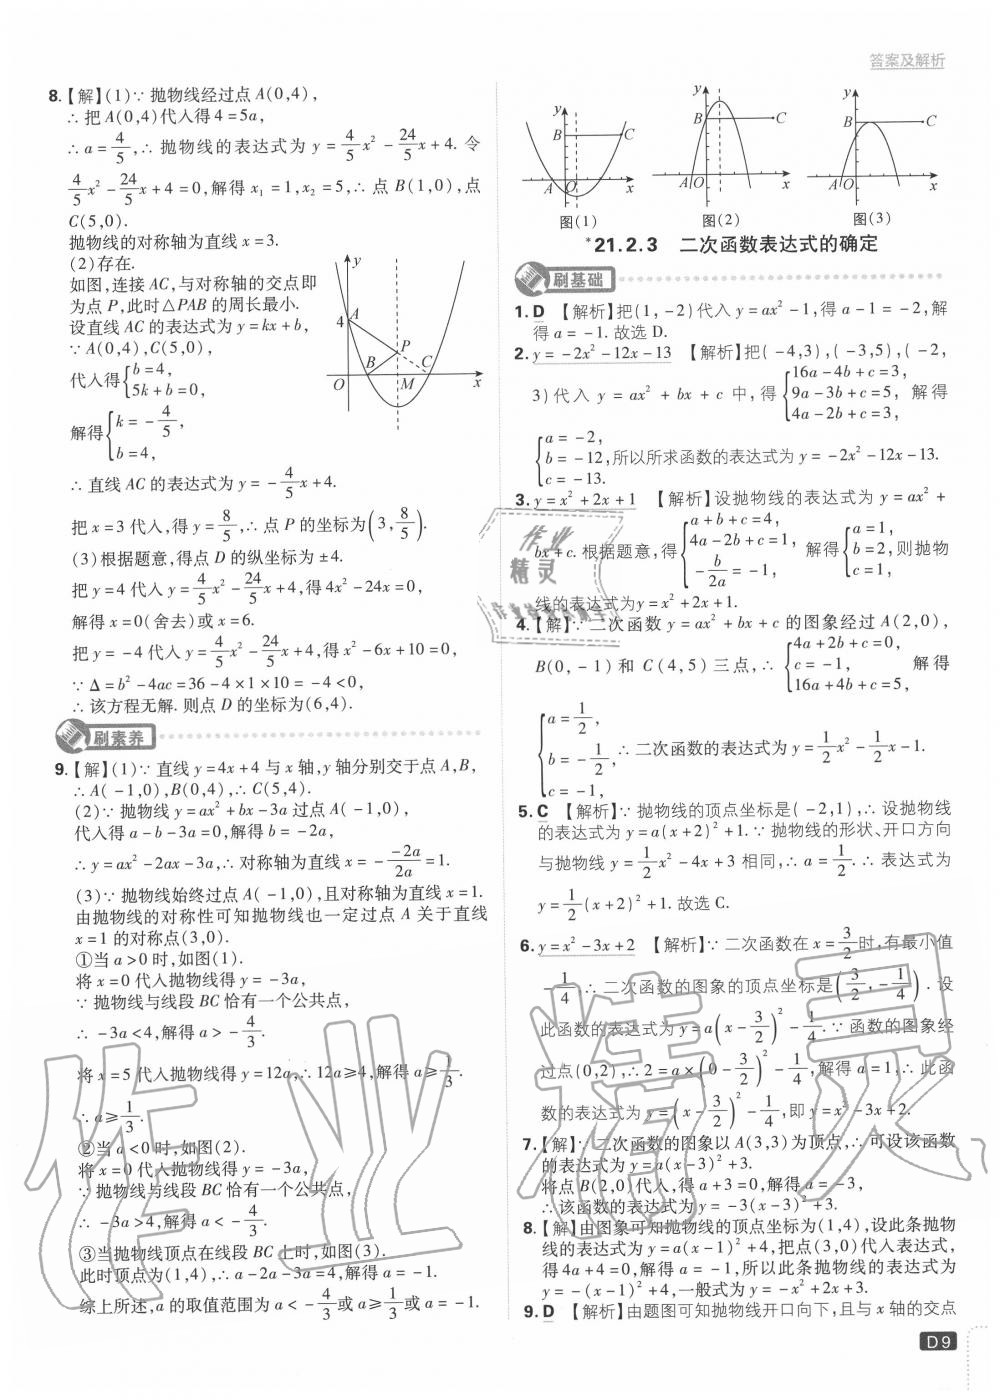 答案及解析
8.【解】(1)∵ 抛物线经过点 A(0,4),
∴ 把 A(0,4)代入得 4=5a,
∴ a=4/5,∴ 抛物线的表达式为 y=4/5x²-24/5x+4. 令
4/5x²-24/5x+4=0,解得 x₁=1,x₂=5,∴ 点 B(1,0),点
C(5,0).
抛物线的对称轴为直线 x=3.
(2)存在.
如图,连接 AC,与对称轴的交点即
为点 P,此时△PAB 的周长最小.
设直线 AC 的表达式为 y=kx+b,
∵ A(0,4),C(5,0),
代入得{b=4,
5k+b=0,
解得{k=-4/5,
b=4,
y
4
A
P
B
C
O
M
x
∴ 直线 AC 的表达式为 y=-4/5x+4.
把 x=3 代入,得 y=8/5,∴ 点 P 的坐标为(3,8/5).
(3)根据题意,得点 D 的纵坐标为 ±4.
把 y=4 代入 y=4/5x²-24/5x+4,得 4x²-24x=0,
解得 x=0(舍去)或 x=6.
把 y=-4 代入 y=4/5x²-24/5x+4,得 x²-6x+10=0,
∵ Δ=b²-4ac=36-4×1×10=-4<0,
∴ 该方程无解. 则点 D 的坐标为(6,4).
刷素养
9.【解】(1)∵ 直线 y=4x+4 与 x 轴,y 轴分别交于点 A,B,
∴ A(-1,0),B(0,4),∴ C(5,4).
(2)∵ 抛物线 y=ax²+bx-3a 过点 A(-1,0),
代入得 a-b-3a=0,解得 b=-2a,
∴ y=ax²-2ax-3a,∴ 对称轴为直线 x=--2a/2a=1.
(3)∵ 抛物线始终过点 A(-1,0),且对称轴为直线 x=1.
由抛物线的对称性可知抛物线也一定过点 A 关于直线
x=1 的对称点(3,0).
①当 a>0 时,如图(1).
将 x=0 代入抛物线得 y=-3a,
∵ 抛物线与线段 BC 恰有一个公共点,
∴ -3a<4,解得 a>-4/3.
将 x=5 代入抛物线得 y=12a,∴ 12a≥4,解得 a≥1/3.
∴ a≥1/3.
②当 a<0 时,如图(2).
将 x=0 代入抛物线得 y=-3a,
∵ 抛物线与线段 BC 恰有一个公共点,
∴ -3a>4,解得 a<-4/3.
③当抛物线顶点在线段 BC 上时,如图(3).
此时顶点为(1,4),∴ a-2a-3a=4,解得 a=-1.
综上所述,a 的取值范围为 a<-4/3或 a≥1/3或 a=-1.
y
B
C
A
O
x
图(1)
y
B
C
A
O
x
图(2)
y
B
C
A
O
x
图(3)
*21.2.3 二次函数表达式的确定
刷基础
1. D 【解析】把(1,-2)代入 y=ax²-1,得 a-1=-2,解
得 a=-1. 故选 D.
2. y=-2x²-12x-13 【解析】把(-4,3),(-3,5),(-2,
3)代入 y=ax²+bx+c 中,得{16a-4b+c=3,
9a-3b+c=5,
4a-2b+c=3,
解得
{a=-2,
b=-12,
c=-13.
所以所求函数的表达式为 y=-2x²-12x-13.
3. y=x²+2x+1 【解析】设抛物线的表达式为 y=ax²+
bx+c. 根据题意,得{a+b+c=4,
4a-2b+c=1,
-b/2a=-1,
解得{a=1,
b=2,
c=1,
则抛物
线的表达式为 y=x²+2x+1.
4.【解】∵ 二次函数 y=ax²+bx+c 的图象经过 A(2,0),
B(0,-1)和 C(4,5)三点,∴{4a+2b+c=0,
c=-1,
16a+4b+c=5,
解得
{a=1/2,
b=-1/2,
c=-1.
∴ 二次函数的表达式为 y=1/2x²-1/2x-1.
5. C 【解析】∵ 抛物线的顶点坐标是(-2,1),∴ 设抛物线
的表达式为 y=a(x+2)²+1. ∵ 抛物线的形状、开口方向
与抛物线 y=1/2x²-4x+3 相同,∴ a=1/2. ∴ 表达式为
y=1/2(x+2)²+1. 故选 C.
6. y=x²-3x+2 【解析】∵ 二次函数在 x=3/2时,有最小值
-1/4,∴ 二次函数的图象的顶点坐标是(3/2,-1/4). 设
此函数的表达式为 y=a(x-3/2)²-1/4. ∵ 函数的图象经
过点(0,2),∴ 2=a×(0-3/2)²-1/4,解得 a=1,∴ 此函
数的表达式为 y=(x-3/2)²-1/4,即 y=x²-3x+2.
7.【解】∵ 二次函数的图象以 A(3,3)为顶点,∴ 可设该函数
的表达式为 y=a(x-3)²+3.
将点 B(2,0)代入,得 a+3=0,解得 a=-3,
∴ 该函数的表达式为 y=-3(x-3)²+3.
8.【解】由图象可知抛物线的顶点坐标为(1,4),设此条抛物
线的表达式为 y=a(x-1)²+4,把点(3,0)代入表达式,
得 4a+4=0,解得 a=-1,所以此条抛物线的表达式为
y=-(x-1)²+4,一般式为 y=-x²+2x+3.
9. D 【解析】由题图可知抛物线开口向下,且与 x 轴的交点
D9
作业精灵
作业
精灵